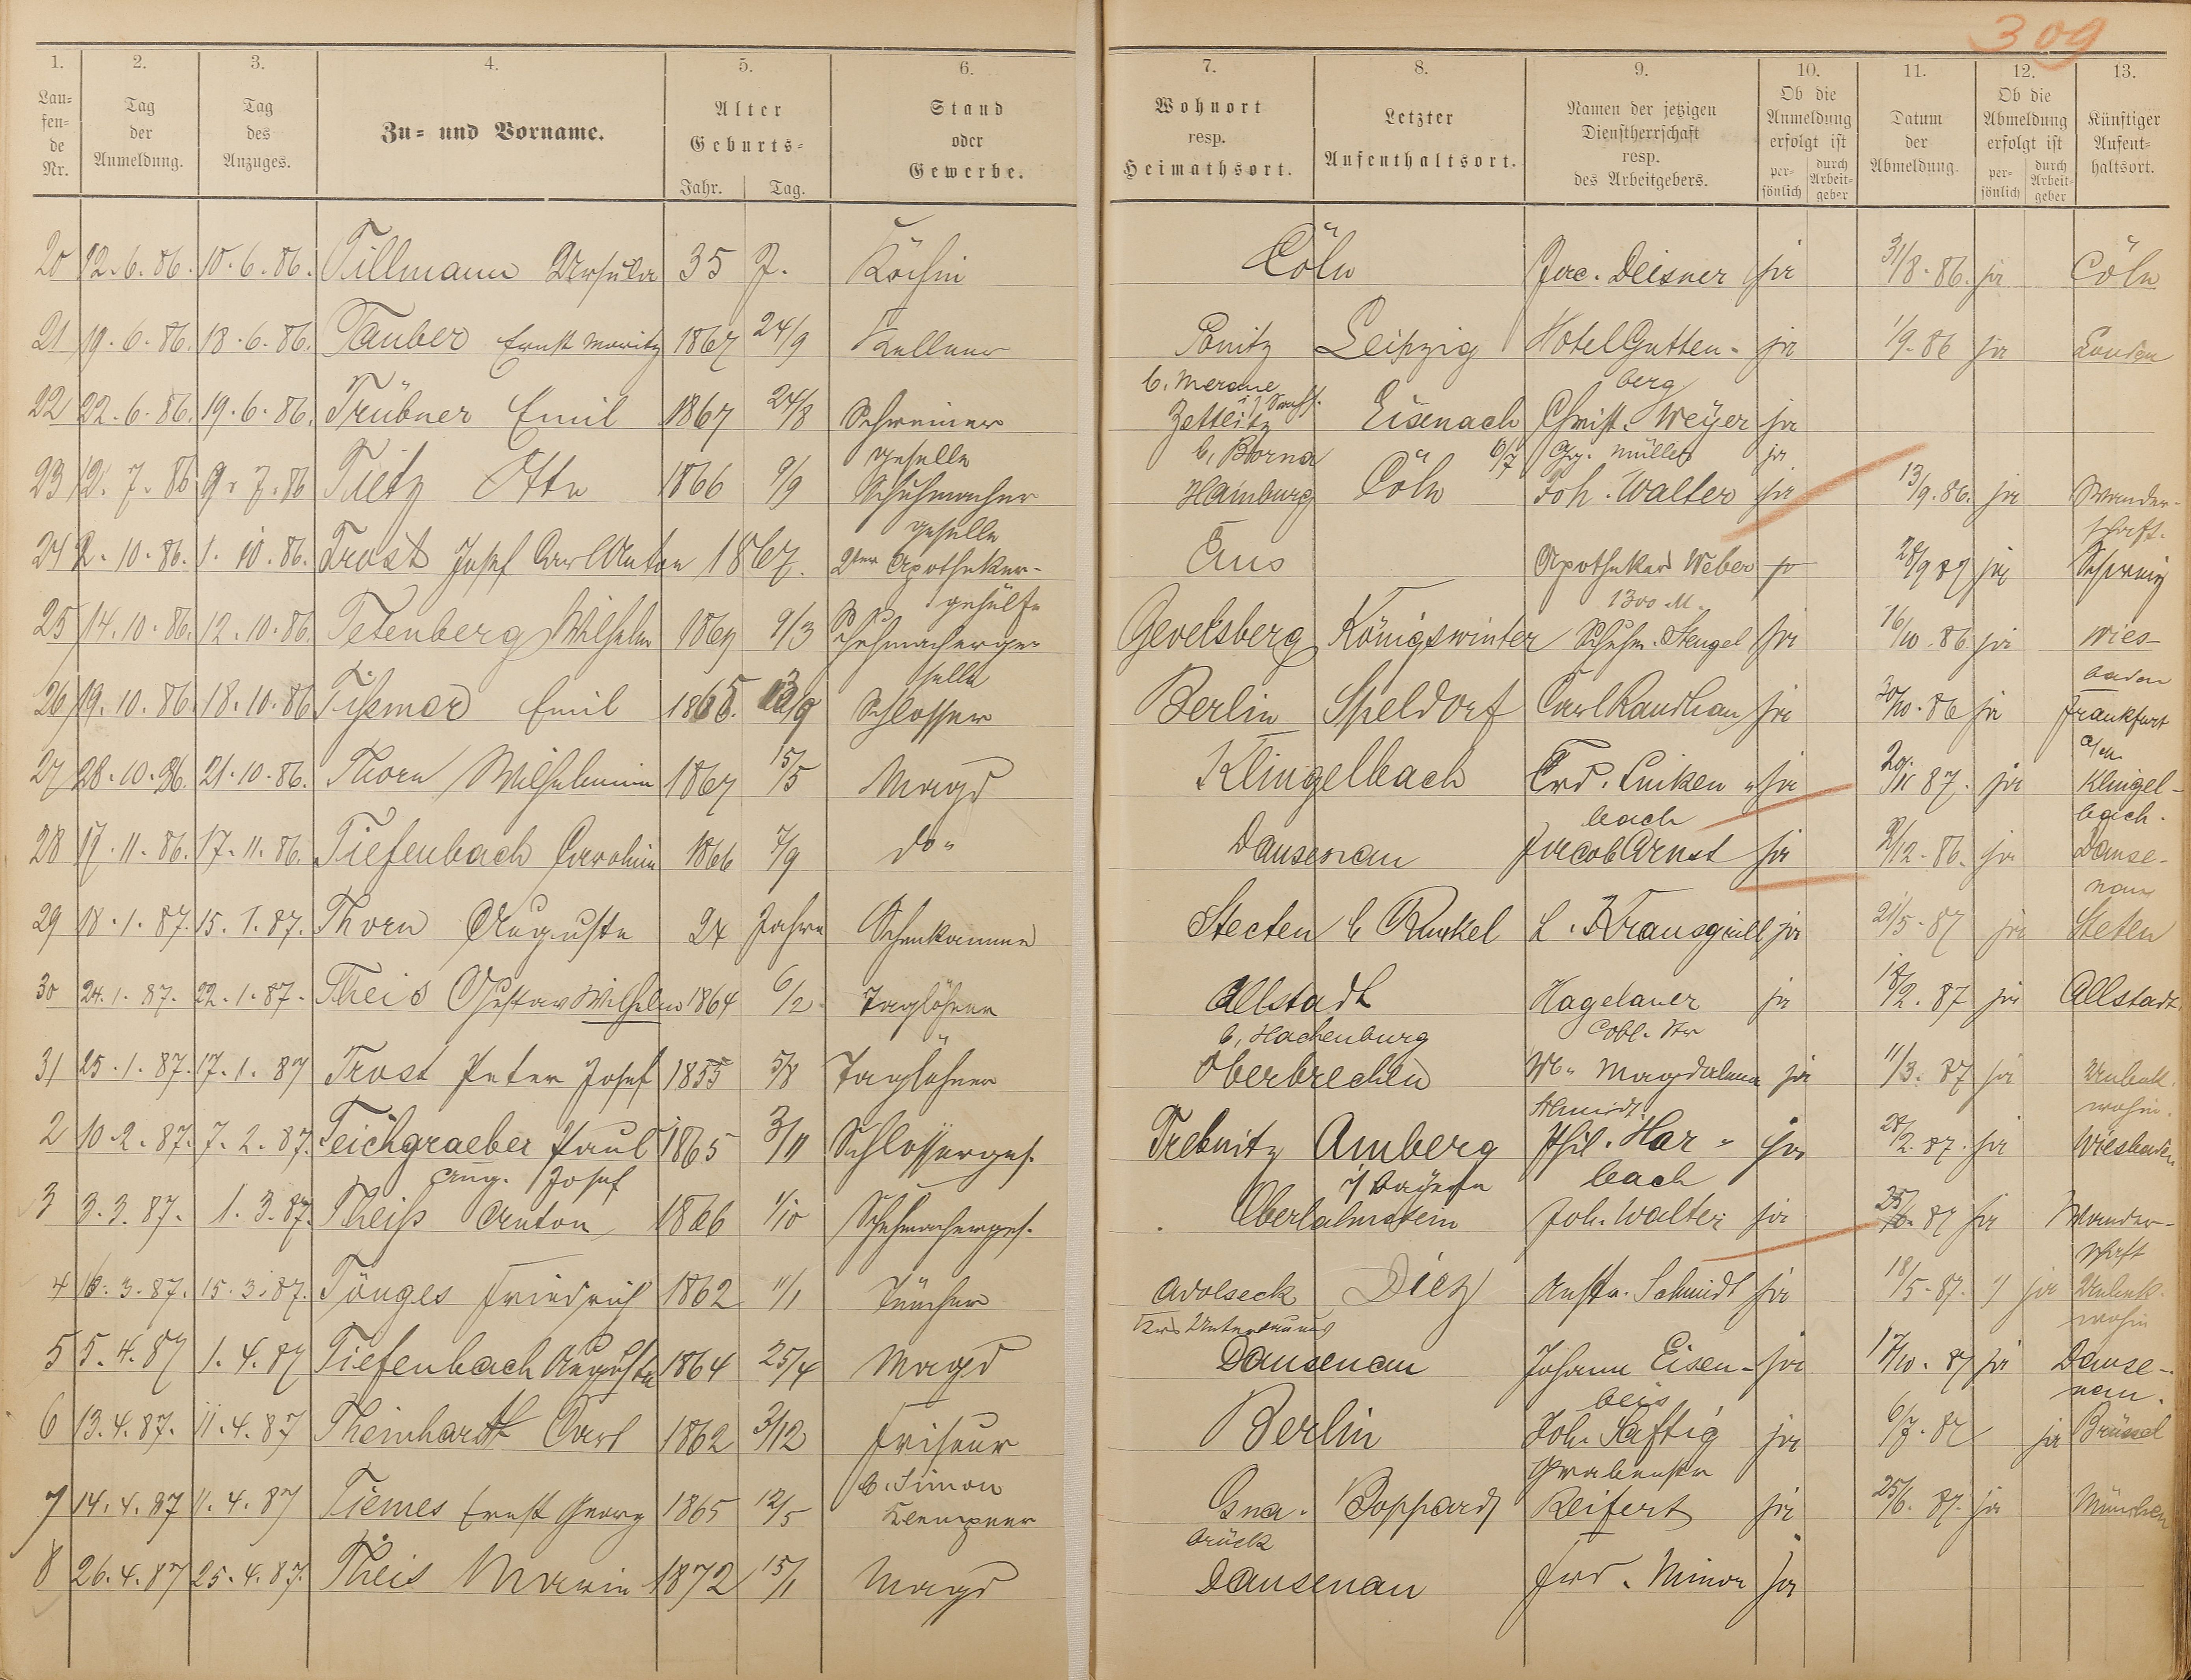 309
1. 2. 3. 4. 5. 6. 7. 8. 9. 10. 11. 12. 13.
Lau=
fen=
de
Nr.
Tag
der
Anmeldung.
Tag
des
Anzuges.
Zu= und Vorname.
Alter
Geburts=
Jahr. Tag.
Stand
oder
Gewerbe.
Wohnort
resp.
Heimathsort.
Letzter
Aufenthaltsort.
Namen der jetzigen
Dienstherrschaft
resp.
des Arbeitgebers.
Ob die
Anmeldung
erfolgt ist
per-
sönlich
durch
Arbeit-
geber
Datum
der
Abmeldung.
Ob die
Abmeldung
erfolgt ist
per-
sönlich
durch
Arbeit-
geber
Künftiger
Aufent-
haltsort.
20 12.6.86. 10.6.86. Tillmann Ursula 35 J. Köchin Cöln Jac. Deisner ja 31/8.86. ja Cöln
21 19.6.86. 18.6.86. Tauber Ernst Moritz 1867 24/9 Kellner Ponitz Leipzig Hotel Gutten- ja 1/9.86 ja London
b. Merane berg
22 22.6.86. 19.6.86. Trübner Emil 1867 24/8 Schreiner Zettlitz Eisenach Christ. Weyer ja
geselle b. Borna 10/7 Gg. Müller ja
23 12.7.86 9.7.86 Tietz Otto 1866 9/9 Schuhmacher Hamburg Cöln Joh. Walter ja 13/9.86. ja Wander-
geselle schaft.
24 2.10.86. 1.10.86. Trost Josef Carl Anton 1867. 2ter Apotheker- Ems Apotheker Weber ja 28/9 87 ja Schweiz
gehülfe 1300 M.
25 14.10.86. 12.10.86. Tetenberg Wilhelm 1869 9/3 Schuhmacherge- Gevelsberg Königswinter Schuhm. Stengel ja 16/10.86 ja Wies-
selle baden
26 19.10.86. 18.10.86 Tißmer Emil 1865. 13/9 Schlosser Berlin Speldorf Carl Randhan ja 30/10.86 ja Frankfurt
a/M.
27 28.10.86. 21.10.86. Thorn Wilhelmine 1867 15/5 Magd Klingelbach Frd. Linken- ja 29/11 87. ja Klingel-
bach bach.
28 17.11.86. 17.11.86. Tiefenbach Caroline 1866 7/9 do. Dausenau Jacob Arnst ja 9/12.86. ja Dause-
nau
29 18.1.87. 15.1.87. Thorn Auguste 24 Jahre Schenkamme Steeten b Runkel L. Krausgrill ja 21/5.87 ja Steten
30 24.1.87. 22.1.87. Theis Gustav Wilhelm 1864 6/2 Taglöhner Allstadt Hagelauer ja 18/2.87 ja Allstadt.
b. Hachenburg Cobl. Str
31 25.1.87. 17.1.87 Trost Peter Josef 1855 5/8 Taglöhner Oberbrechen Ww. Magdalena ja 11/3.87 ja Unbek.
Schmidt. wohin.
2 10.2.87. 7.2.87. Teichgraeber Paul 1865 3/11 Schlosserges. Trebnitz Amberg Phil. Har- ja 28/2.87. ja Wiesbaden
Aug. Josef i/ Bayern bach
3 3.3.87. 1.3.87. Theiß Anton 1866 1/10 Schuhmacherges. Oberlahnstein Joh. Walter ja 25/6.87 ja Wander-
schaft
4 16.3.87. 15.3.87. Tönges Friedrich 1862 11/1 Tüncher Adolseck Diez Anstr. Schmidt ja 18/5.87. ja Unbek.
wohin
5 5.4.87 1.4.87 Tiefenbach Auguste 1864 25/4 Magd Dausenau Johann Eisen- ja 17/10.87 ja Dause-
beis nau.
6 13.4.87. 11.4.87 Theinhardt Carl 1862 3/12 Friseur Berlin Joh. Saftig ja 6/7.87 ja Brüssel
b. Simon Grabenstr
7 14.4.87 11.4.87 Tiemes Ernst Georg 1865 12/5 Klempner Osna- Boppard Reifert ja 25/6.87. ja München
brück
8 26.4.87 25.4.87. Theis Marie 1872 15/1 Magd Dausenau Frd. Minor ja